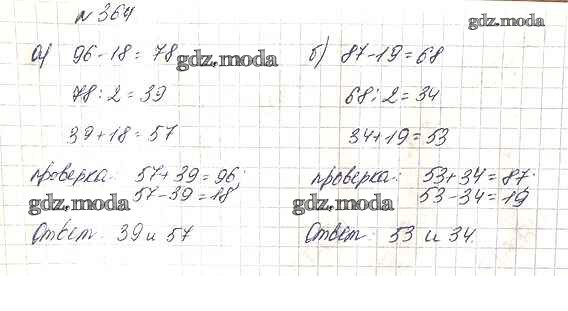 №364
gdz.moda
а) 96 - 18 = 78
gdz.moda
78 : 2 = 39
39 + 18 = 57
проверка: 57 + 39 = 96;
57 - 39 = 18
gdz.moda
Ответ: 39 и 57
б) 87 - 19 = 68
68 : 2 = 34
34 + 19 = 53
проверка: 53 + 34 = 87;
53 - 34 = 19
gdz.moda
Ответ: 53 и 34.